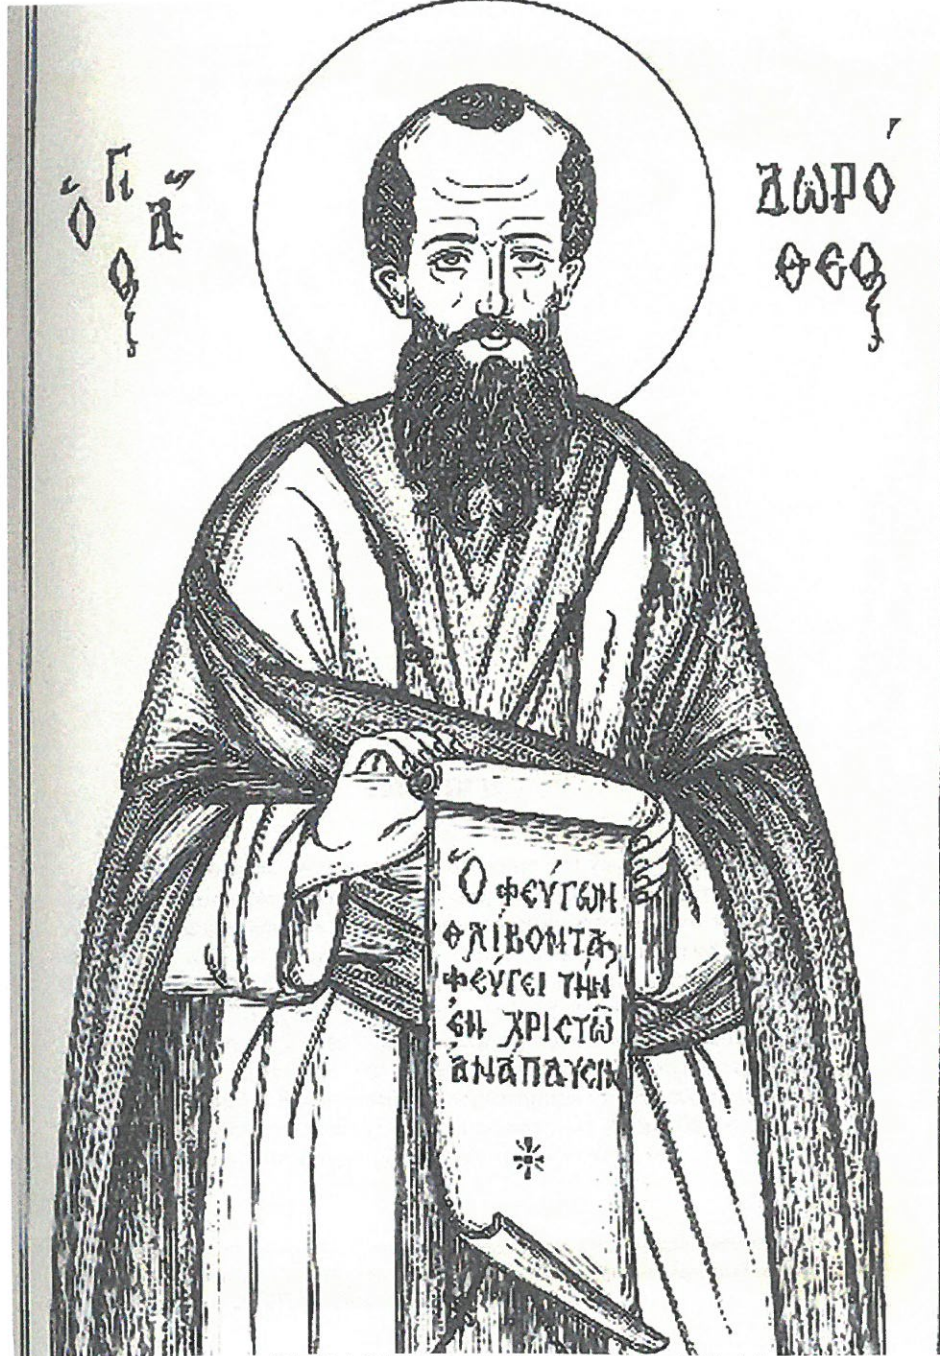 Ὁ ἍΓΙΟς
ΔΩΡΌ
ΘΕΟς
Ὁ ΦΕΎΓΩΝ
ΘΛΊΒΟΝΤΑ,
ΦΕΎΓΕΙ ΤῊΝ
ἘΝ ΧΡΙΣΤῶ
ἈΝΆΠΑΥΣΙΝ